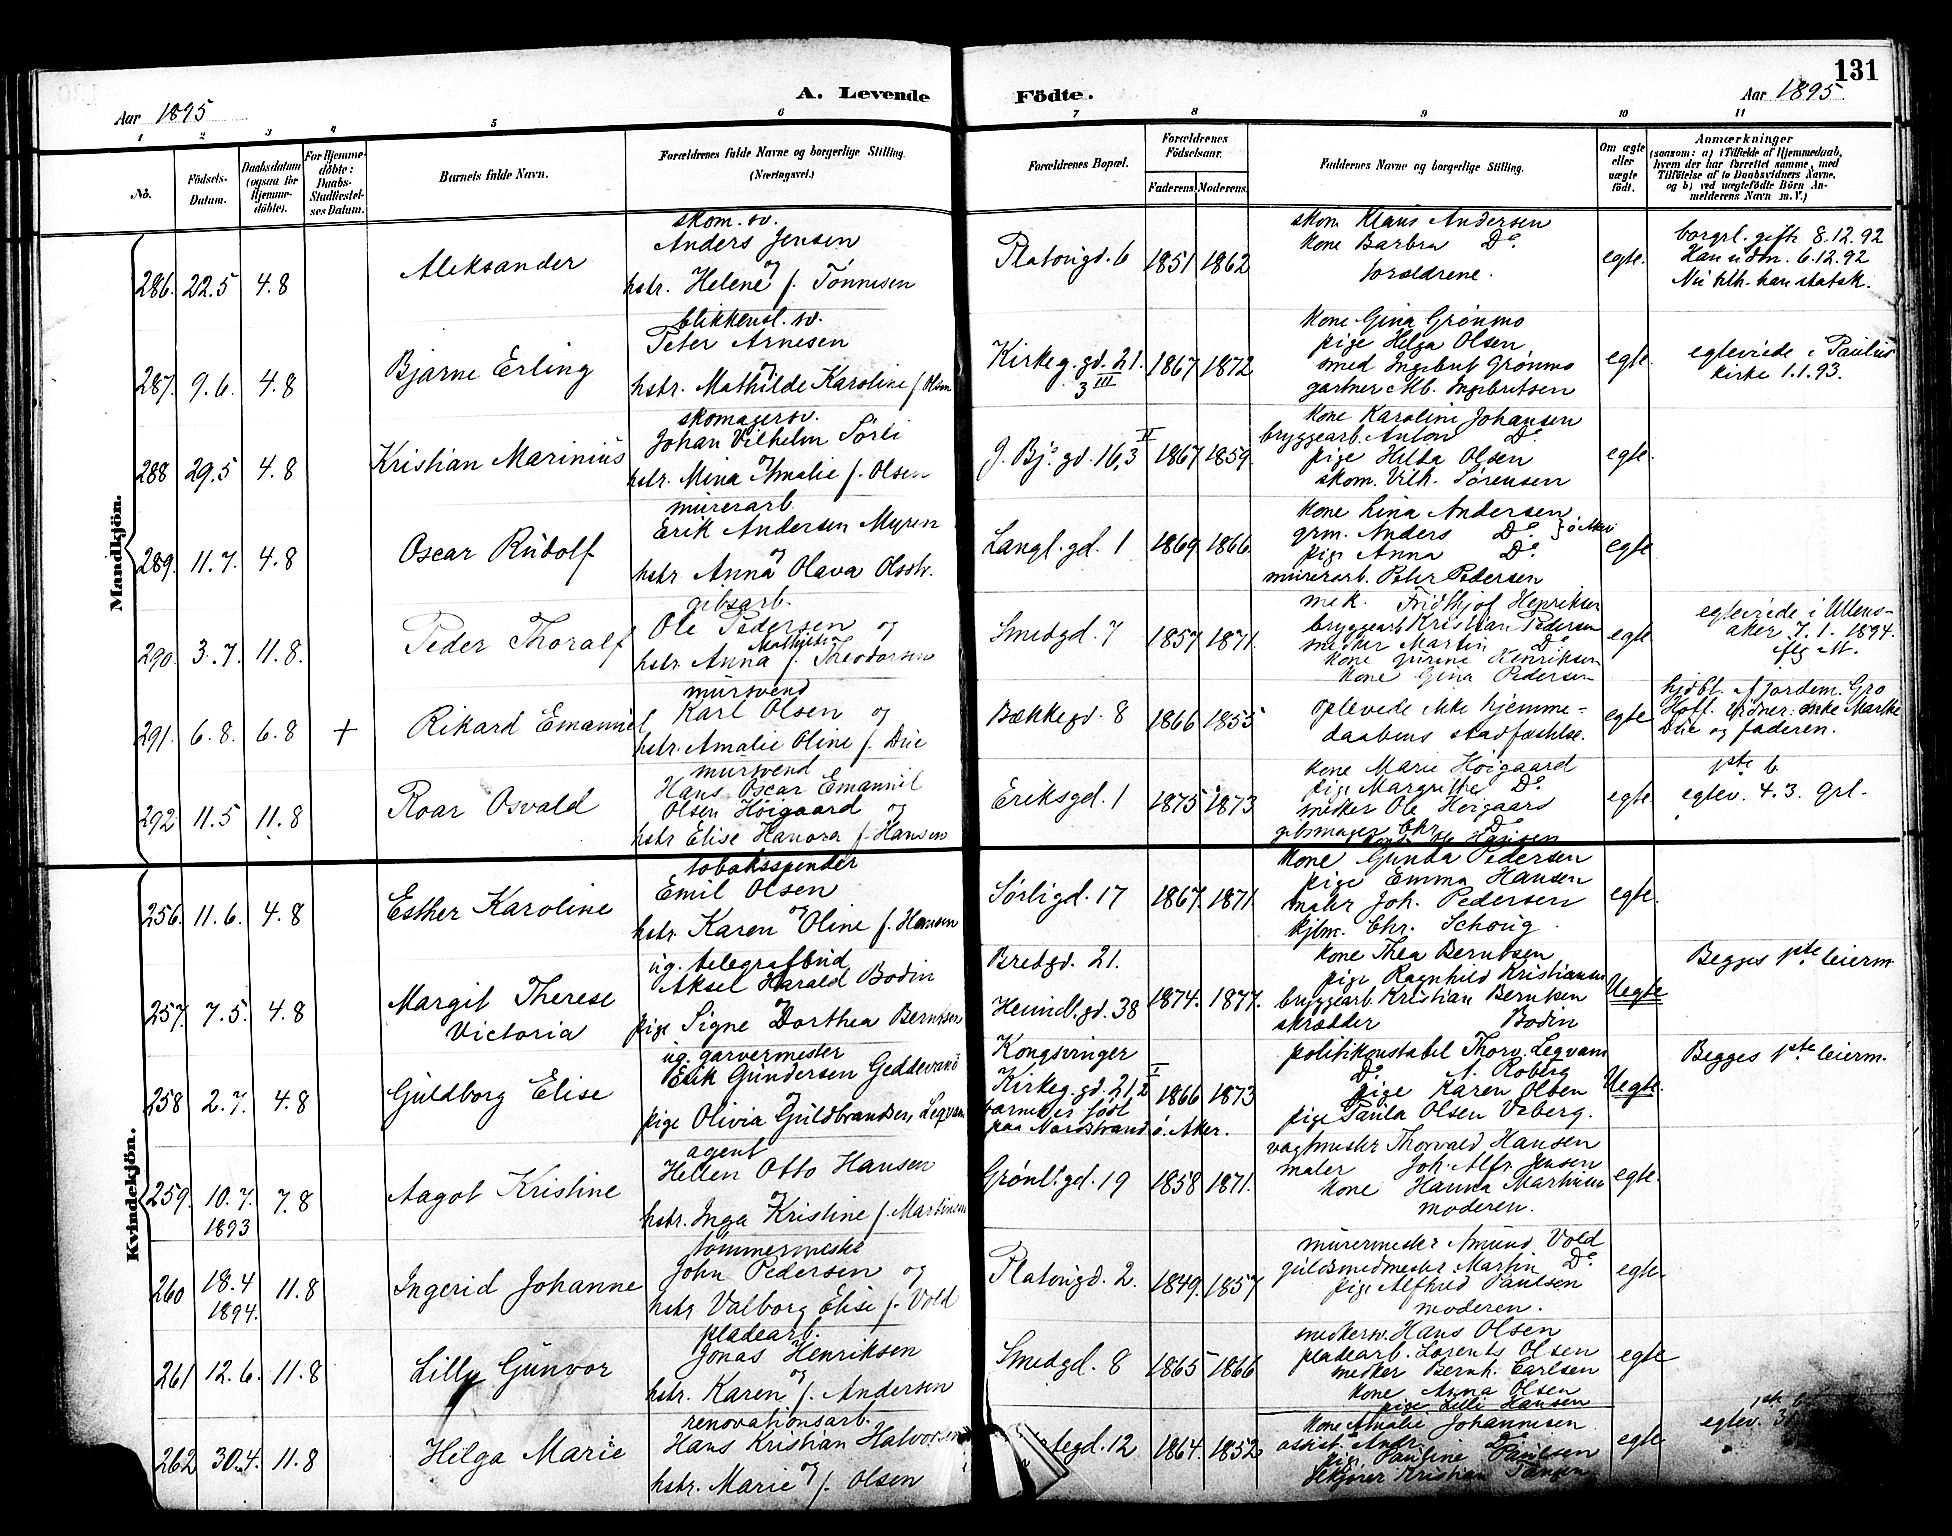 131
A. Levende Födte.
Aar 1895
Aar 1895
1 2 3 4 5 6 7 8 9 10 11
No.
Födsels-Datum.
Daabsdatum (ogsaa for Hjemmedöbte).
For Hjemmedöbte: Daabs-Stadfæstelses Datum.
Barnets fulde Navn.
Forældrenes fulde Navne og borgerlige Stilling. (Næringsvei.)
Forældrenes Bopæl.
Forældrenes Födselsaar.
Faderens. Moderens.
Faddernes Navne og borgerlige Stilling.
Om ægte eller uægte født.
Anmærkninger
(saasom: a) i Tilfælde af Hjemmedaab, hvem der har forrettet samme, med Tilföielse af to Daabsvidners Navne, og b) ved uægtefödte Börn Anmelderens Navn m. V.)
Mandkjön.
286. 22.5 4.8 Aleksander
skom. sv.
Anders Jensen
og
hstr. Helene f. Tönnesen
Platougd. 6 1851 1862
skom Klaus Andersen
kone Barbra Do.
forældrene.
egte.
borgrl. gifte 8.12.92
Han udm. 6.12.92
287. 9.6. 4.8 Bjarne Erling
blikkensl. sv.
Peter Arnesen
og
hstr. Mathilde Karoline f.
Kirkeg. gd. 21. 3 III 1867 1872
kone Gina Grønmo
pige Helga Olsen
smed Ingebrit Grønmo
gartner M. Ingebritsen
egte.
egteviede i Paulus
kirke 1.1.93.
288 29.5 4.8 Kristian Marinius
skomagersv.
Johan Vilhelm Sörli
og
hstr. Mina Amalie f. Olsen
J. Bj. gd. 16,3 II 1867 1859.
kone Karoline Johansen
bryggearb. Anton Do.
pige Hilda Olsen
skom. Vilh. Sørensen
egte.
289. 11.7. 4.8 Oscar Rudolf
murerarb.
Erik Andersen Myren
og
hstr Anna Olava Olsdtr.
Langl. gd. 1 1869 1866
kone Lina Andersen
grm. Anders Do. } ö Aker
pige Anna Do.
murerarb. Peter Pedersen
egte
290. 3.7. 11.8. Peder Thoralf
gibsarb.
Ole Pedersen og
Mathilde
hstr. Anna f. Theodorsen
Smedgd. 7 1857 1871.
mek. Fridthjof Henriksen
bryggearb Kristian Pedersen
snekker Martin Do.
kone Jurine Henriksen
kone Gina Pedersen
egte
egteviede i Ullens-
aker 7.1. 1894.
291. 6.8. 6.8 + Rikard Emanuel
mursvend
Karl Olsen og
hstr. Amalie Oline f. Due
Bækkegd. 8 1866 1855
oplevede ikke hjemme-
daabens stadfæstelse.
egte
hjdbt. af jordem. Gro
Hoff. Vidner: enke Marthe
Due og faderen.
292 11.5 11.8 Roar Osvald
mursvend
Hans Oscar Emannil
Olsen Höigaard og
hstr Elise Hanora f. Hansen
Eriksgd. 1 1875 1873
kone Marie Höigaard
pige Margrethe Do.
snekker Ole Höigaard
gibsmager Chr. Do.
egte.
1ste b.
egtev. 4.3. Grl.
Kvindekjön.
256. 11.6. 4.8 Esther Karoline
tobaksspinder
Emil Olsen
og
hstr. Karen Oline f. Hansen
Sörligd. 17 1867. 1871.
kone Gunda Pedersen
pige Emma Hansen
maler Joh. Pedersen
kjbm. Chr. Schoug.
egte.
257. 7.5. 4.8 Margit Therese
Victoria
ug. telegrafbud
Aksel Harald Bodin
og
pige Signe Dorthea Berntsen
Bredgd. 21.
Heimdl. gd. 38 1874. 1877.
kone Thea Berntsen
pige Ragnhild Kristiansen
bryggearb. Kristian Berntsen
skrædder Bodin
Uegte
Begges 1ste leierm
258 2.7. 4.8 Guldborg Elise
ug. garvermester
Erik Gundersen Geddevand
og
pige Olivia Guldbrandsen, Legvam
Kongsvinger
Kirkeg. gd. 21 2 I 1866 1873
barnet er född
paa Nordstrand ö. Aker.
politikonstabel Thorv. Legvam
Do. A. Roberg
pige Karen Olsen
pige Paula Olsen Viberg.
Uegte.
Begges 1ste leierm.
259. 10.7. 7.8 Aagot Kristine
1893
agent
Hellen Otto Hansen
hstr. Inga Kristine f. Martinsen
Grönl. gd. 19 1858 1871.
vagtmester Thorvald Hansen
maler Joh. Alfr. Jensen
kone Hanna Martinsen
moderen.
egte.
260 18.4 11.8 Ingerid Johanne
1894.
tömmermester
John Pedersen og
hstr Valborg Elise f. Vold
Platougd. 2. 1849. 1857
murermester Amund Vold
guldsmedmester Martin Do.
pige Alfhild Paulsen
moderen.
egte
261 12.6. 11.8 Lilly Gunvor
pladearb.
Jonas Henriksen
og
hstr. Karen f. Andersen
Smedgd. 8 1865 1866
snekkersv. Hans Olsen
pladearb. Lorents Olsen
snekker Bernh. Carlsen
kone Anna Olsen
pige Lilli Hansen
egte
262 30.4. 11.8 Helga Marie
renovationsarb.
Hans Kristian Halvorsen
og
hstr. Marie f. Olsen
tegd. 12 1864. 1852
kone Amalie Johannesen
assist. Andr. Do.
pige Pauline Paulsen
Kristian Hansen
egte
1ste b.
egtev.